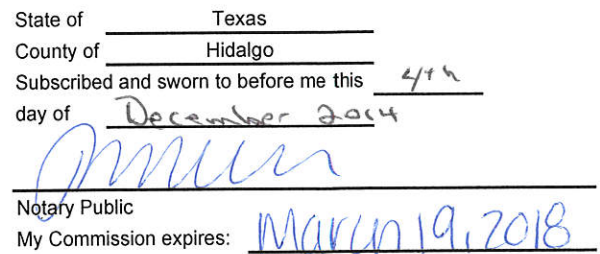 State of Texas
County of Hidalgo
Subscribed and sworn to before me this 4th
day of December 2014
Notary Public
My Commission expires: March 19, 2018